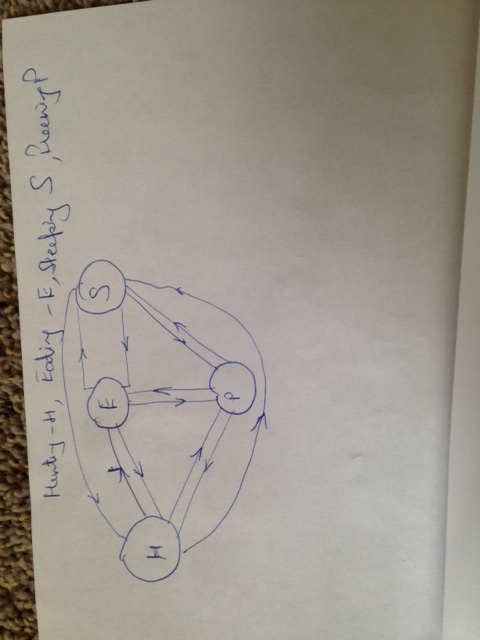 Hunting - H, Eating - E, Sleeping S, Preening P
S
E
P
H